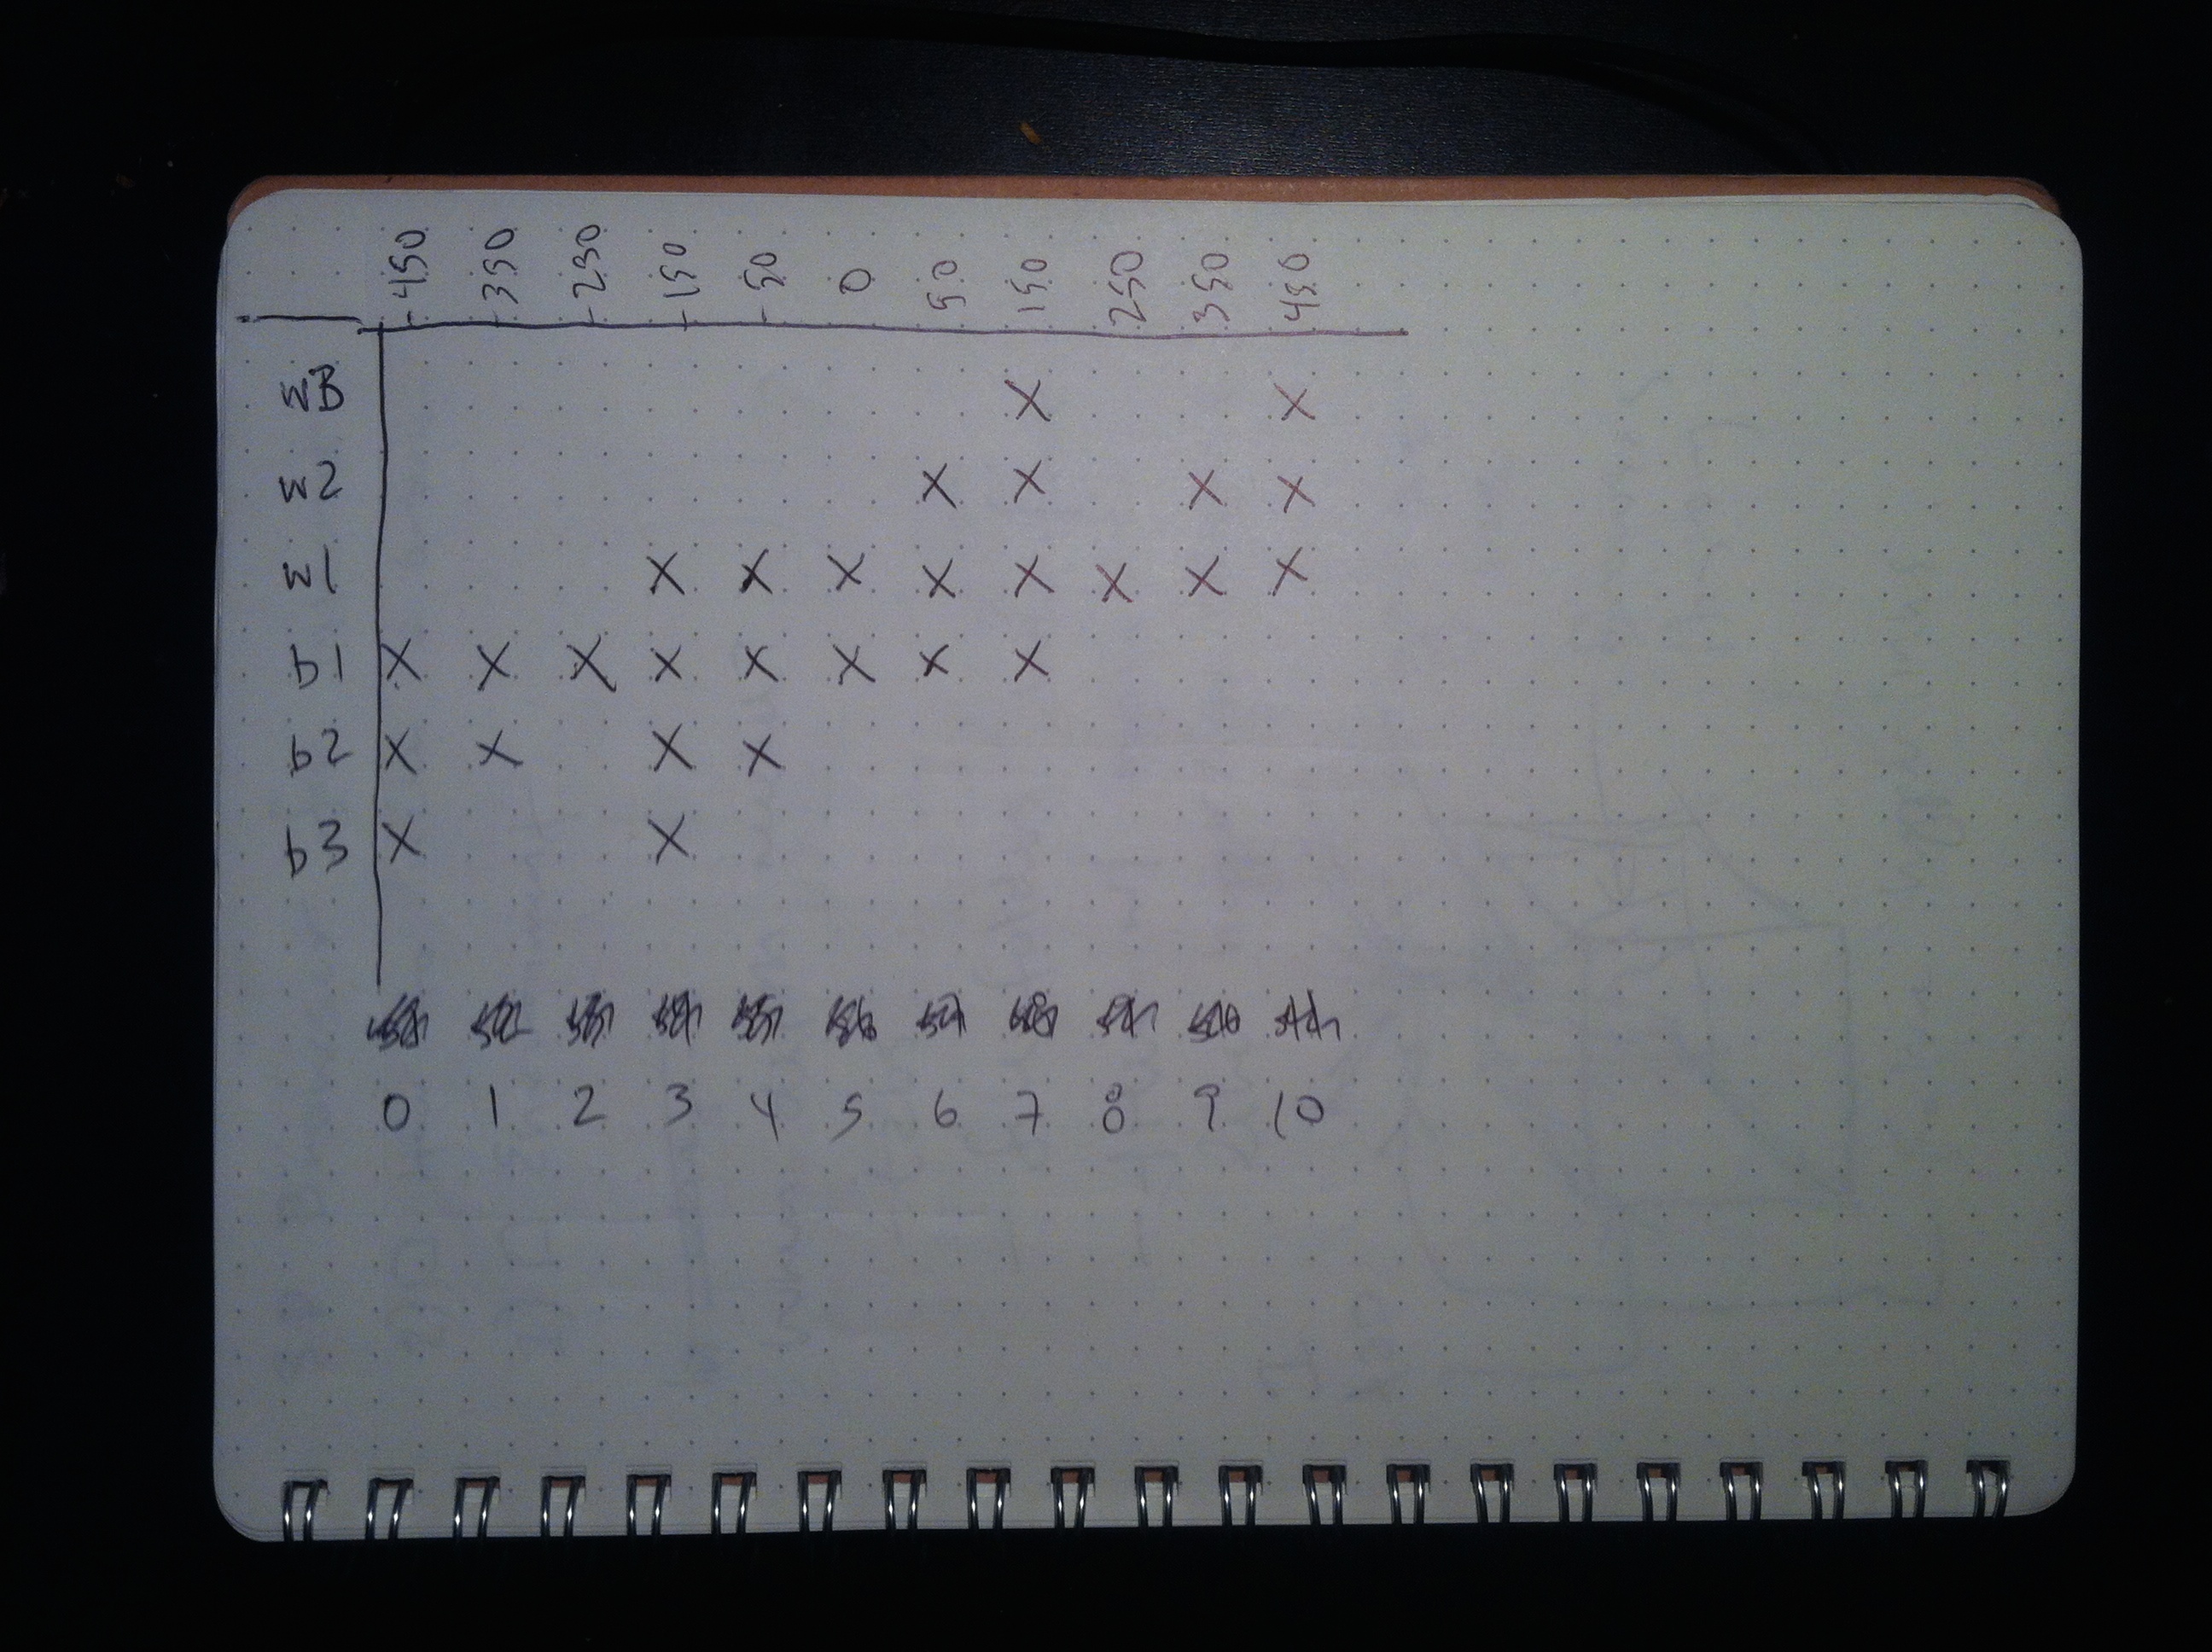 -450 -350 -250 -150 -50 0 50 150 250 350 450
WB X X
W2 X X X X
W1 X X X X X X X X
b1 X X X X X X X X
b2 X X X X
b3 X X
0 1 2 3 4 5 6 7 8 9 10